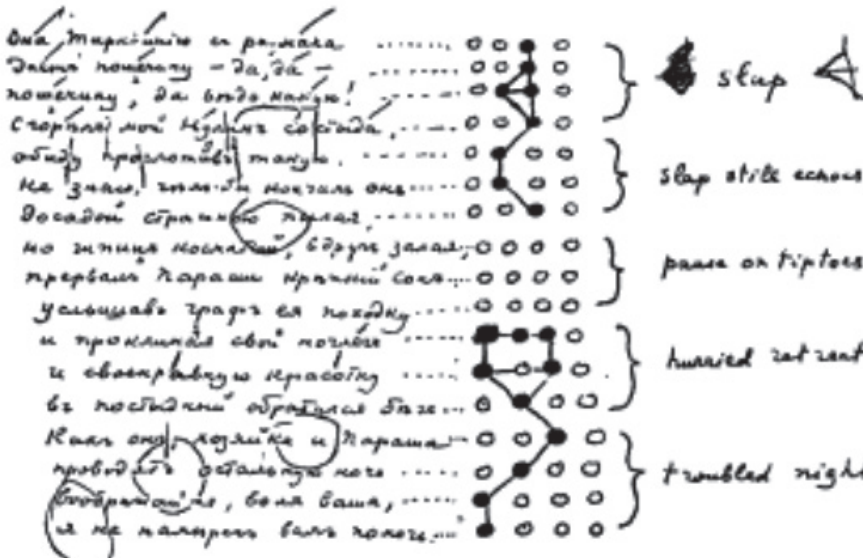 Она Тарквинію съ размаха
даетъ пощечину – да, да –
пощечину, да вѣдь какую!
Сгорѣлъ мой Нулинъ со стыда,
обиду проглотивъ такую.
не знаю, чѣмъ бы кончилъ онъ
досадой страшною пылая,
но шпицъ косматый, вдругъ залая,
прервалъ Параши крѣпкій сонъ
услышавъ графъ ея походку
и проклиная свой ночлегъ
и своенравную красотку
въ постыдный обратился бѣгъ
Какъ онъ, хозяйка и Параша
проводятъ остальную ночь
воображайте, воля ваша,
я не намѣренъ вамъ помочь.
slap
slap still echoes
pause on tiptoes
hurried retreat
troubled nigh